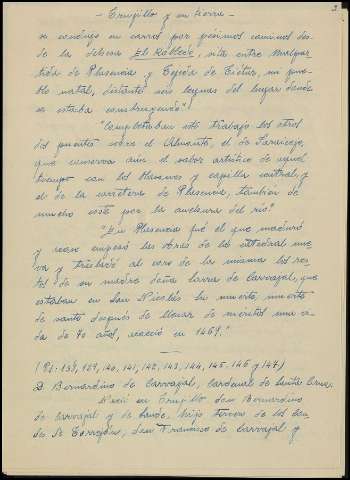 3
- Trujillo y su tierra -
se condujo en carros por pésimos caminos des-
de la dehesa El Robledo, sita entre Malpar-
tida de Plasencia y Tejeda de Tiétar, mi pue-
blo natal, distante seis leguas del lugar donde
se estaba construyendo".
"Completaban este trabajo los otros
dos puentes sobre el Almonte, el de Jaraicejo,
que conserva aún el sabor artístico de aquel
tiempo con los blasones y capilla central, y
el de la carretera de Plasencia, también de
mucho coste por la anchura del río".
"En Plasencia fué el que
y acaso empezó las obras de la catedral nue-
va y trasladó al coro de la misma los res-
tos de su madre doña Sarra de Carvajal, que
estaban en San Nicolás. Su muerte, muerte
de santo después de llenar de méritos una vi-
da de 70 años, acaeció en 1469."
(Pg. 138, 139, 140, 141, 142, 143, 144, 145, 146 y 147)
D. Bernardino de Carvajal, Cardenal de Santa Cruz.
Nació en Trujillo don Bernardino
de Carvajal y de Sande, hijo tercero de los
de Torrejón, don Francisco de Carvajal y